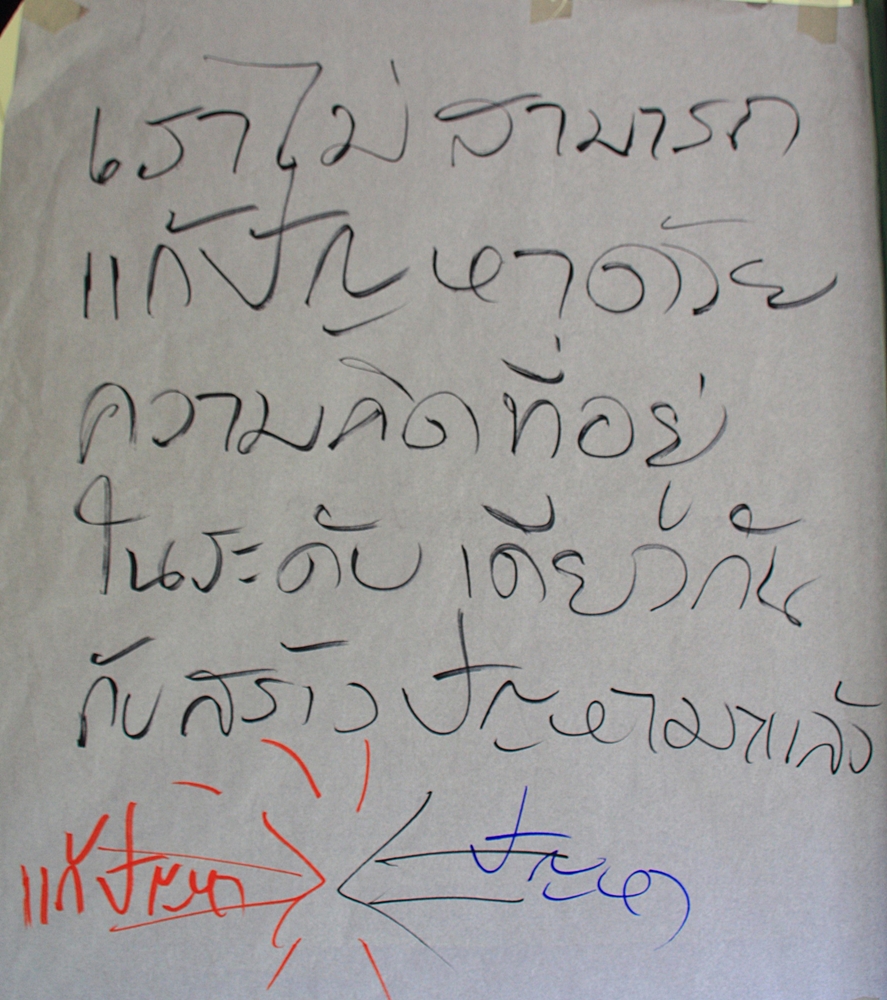 เราไม่สามารถ
แก้ปัญหาด้วย
ความคิดที่อยู่
ในระดับเดียวกัน
กับสร้างปัญหามาแล้ว
แก้ปัญหา ปัญหา